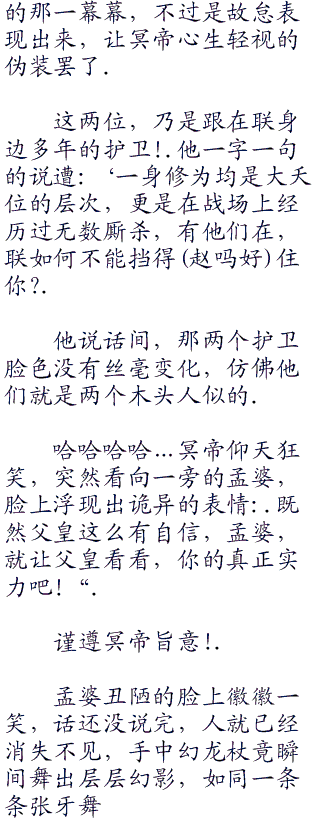 的那一幕幕，不过是故怠表
现出来，让冥帝心生轻视的
伪装罢了.
这两位，乃是跟在联身
边多年的护卫!.他一字一句
的说遭：‘一身修为均是大天
位的层次，更是在战场上经
历过无数厮杀，有他们在，
联如何不能挡得(赵吗好)住
你?.
他说话间，那两个护卫
脸色没有丝毫变化，仿佛他
们就是两个木头人似的.
哈哈哈哈...冥帝仰天狂
笑，突然看向一旁的孟婆，
脸上浮现出诡异的表情:.既
然父皇这么有自信，孟婆，
就让父皇看看，你的真正实
力吧！“.
谨遵冥帝旨意!.
孟婆丑陋的脸上徽徽一
笑，话还没说完，人就已经
消失不见，手中幻龙杖竟瞬
间舞出层层幻影，如同一条
条张牙舞